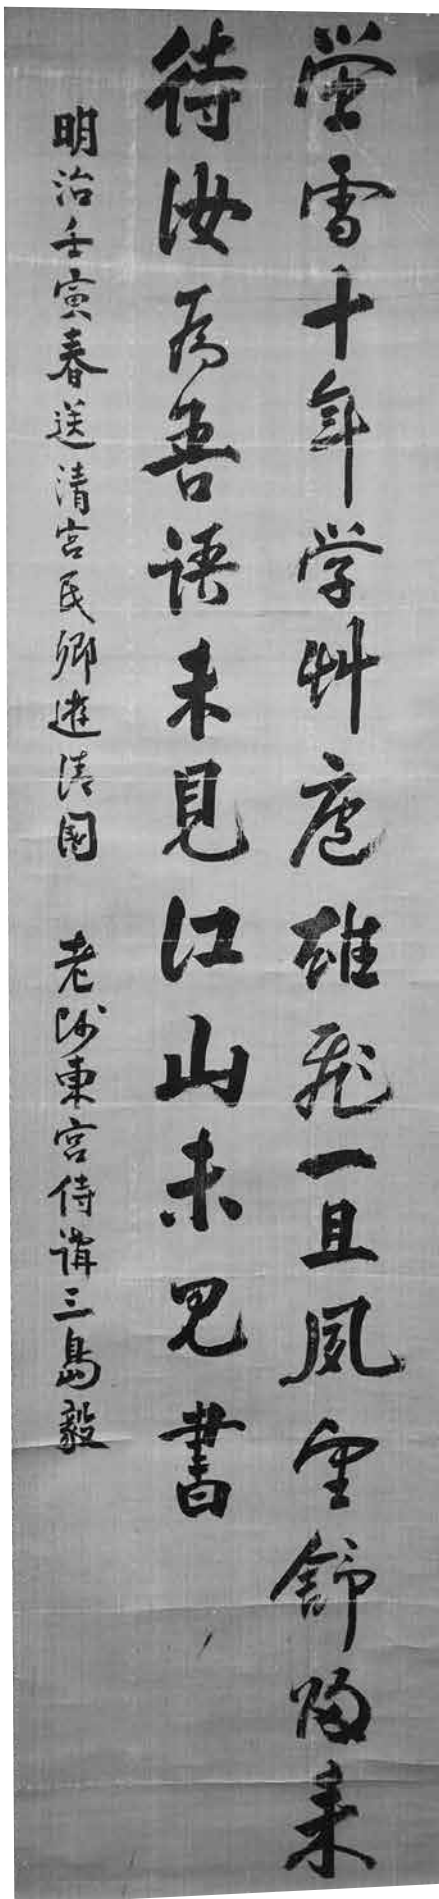 蛍雪十年学艸廬雄飛一旦風雲舒帰来
待汝為吾語未見江山未見書
明治壬寅春送清宮民卿遊清國 老師東宮侍講三島毅